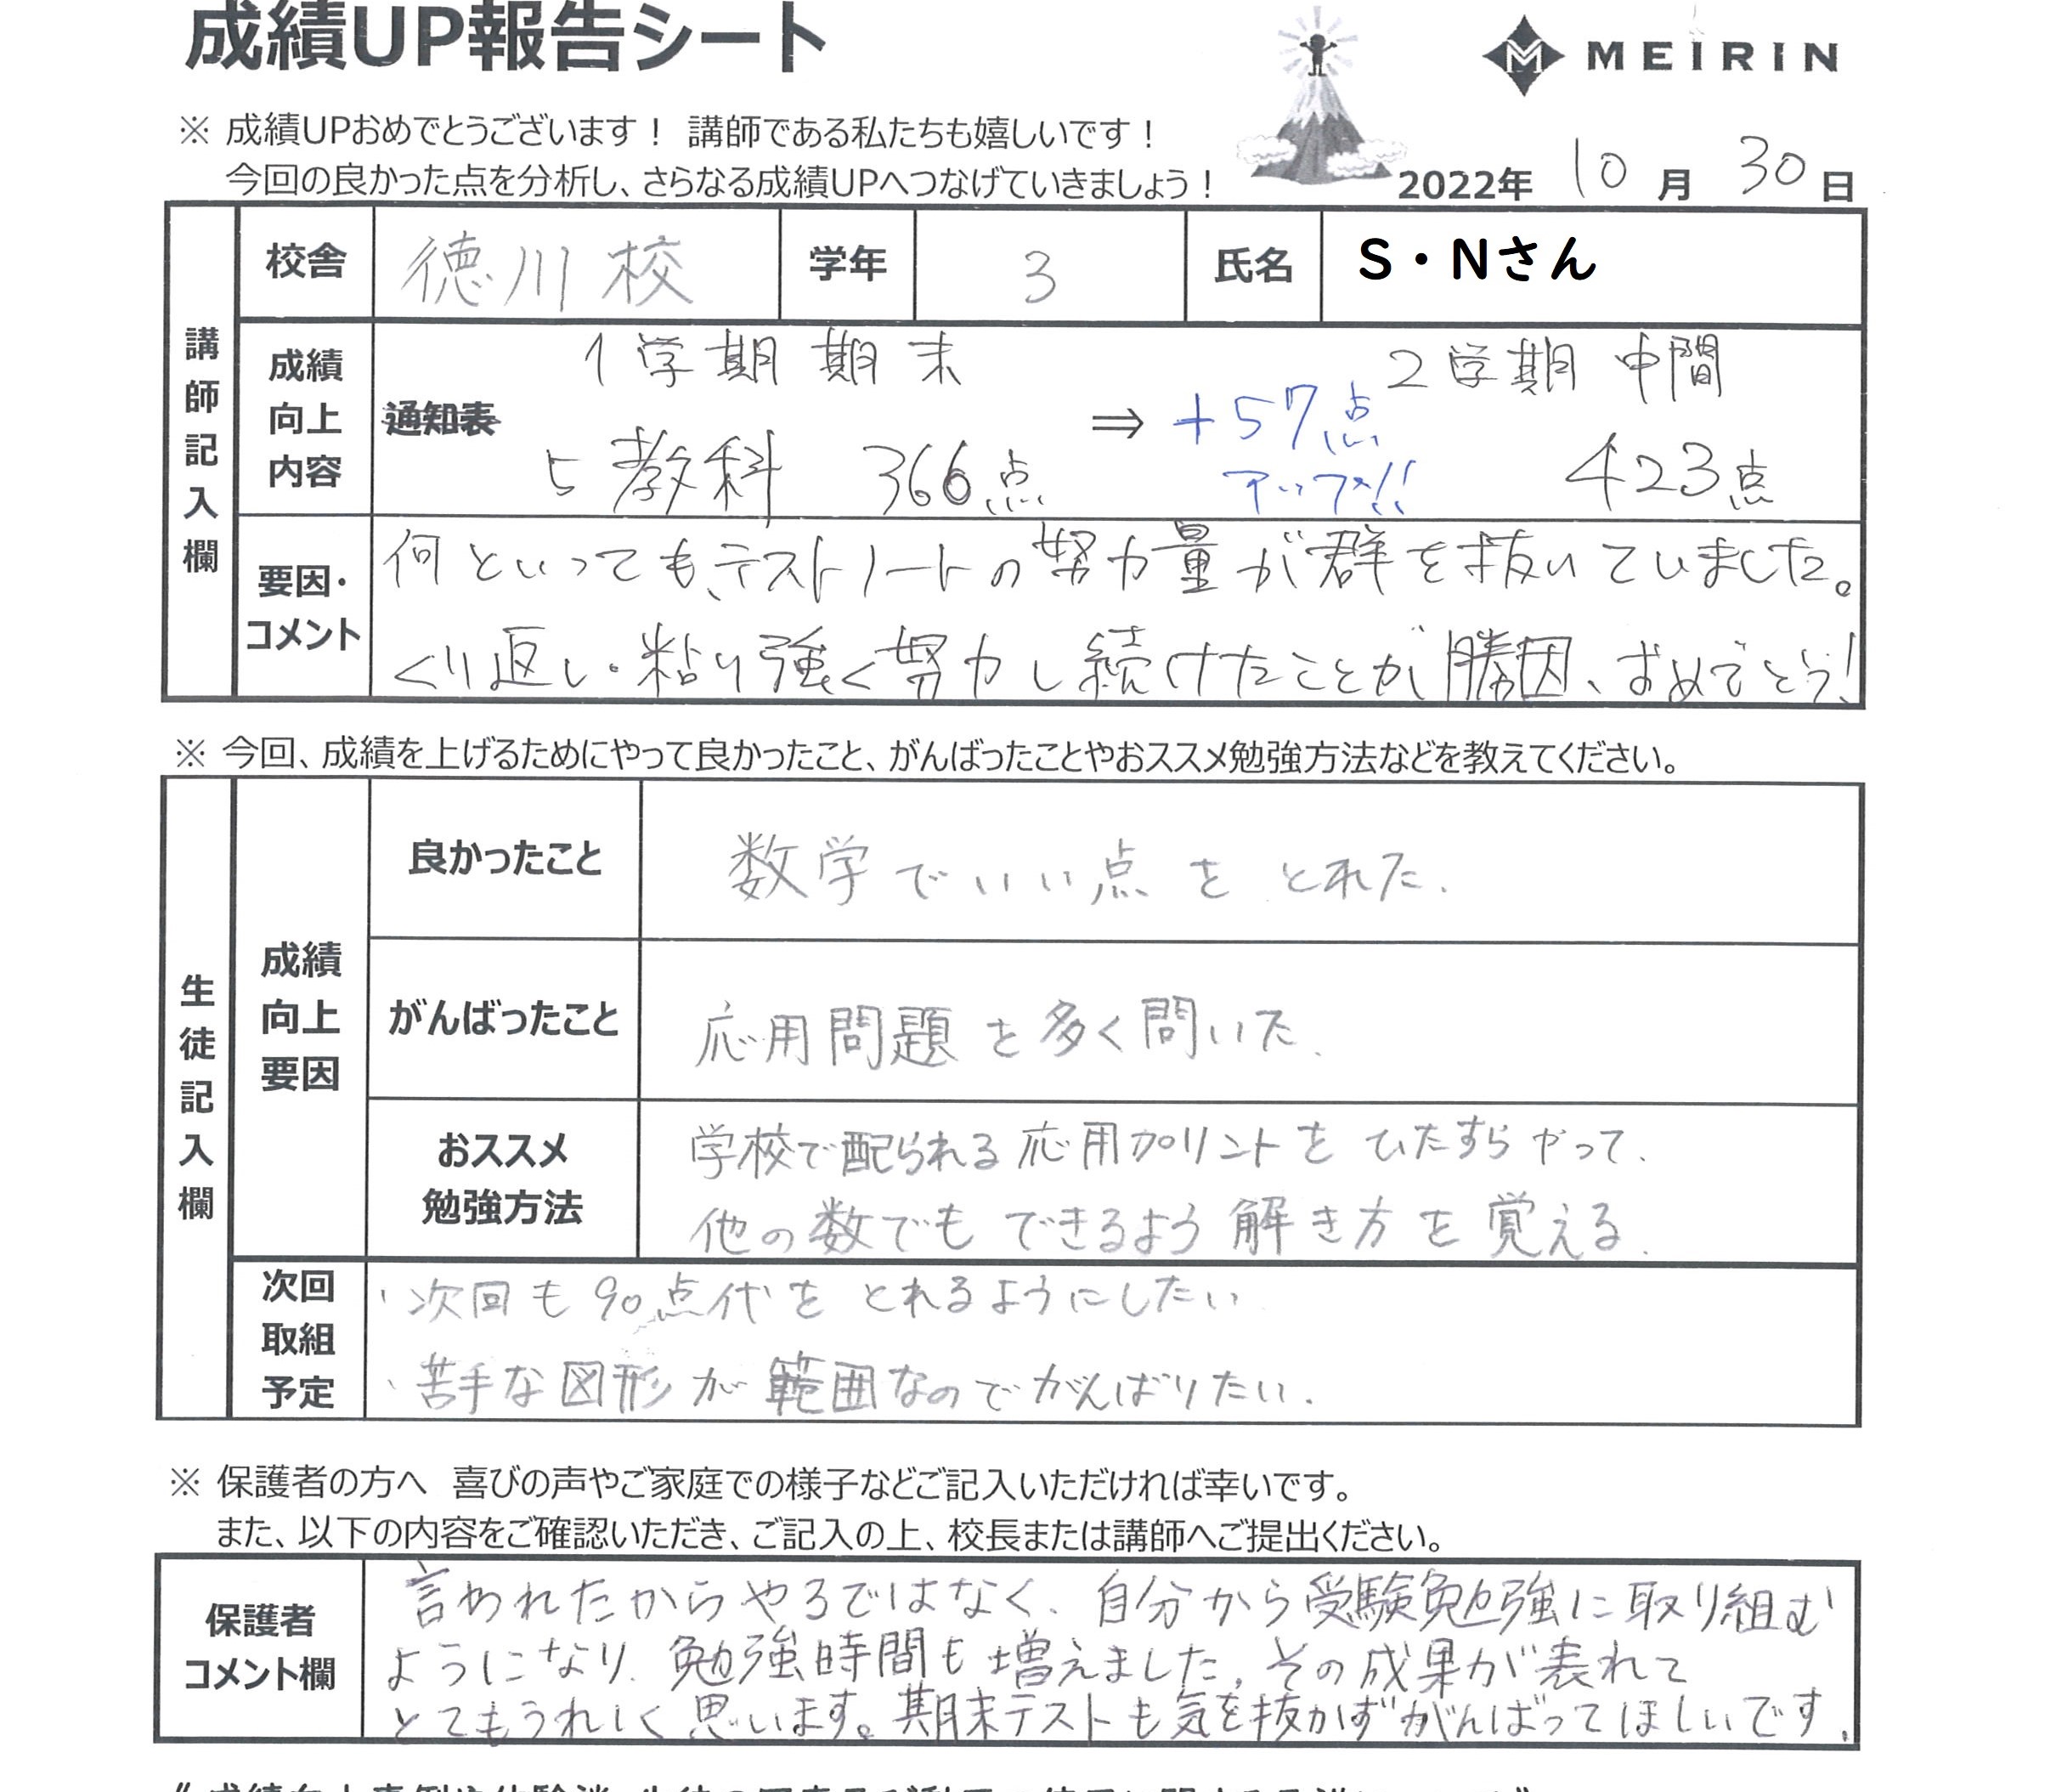 成績UP報告シート
MEIRIN
※ 成績UPおめでとうございます！ 講師である私たちも嬉しいです！
今回の良かった点を分析し、さらなる成績UPへつなげていきましょう！
2022年 10月 30日
講師記入欄
校舎 徳川校 学年 3 氏名 S・Nさん
成績向上内容
通知表
1学期期末 ⇒ 2学期中間
5教科 366点 +57点アップ!! 423点
要因・コメント
何といっても、テストノートの努力量が群を抜いていました。
くり返し・粘り強く努力し続けたことが勝因、おめでとう!
※ 今回、成績を上げるためにやって良かったこと、がんばったことやおススメ勉強方法などを教えてください。
生徒記入欄
成績向上要因
良かったこと 数学でいい点をとれた.
がんばったこと 応用問題を多く問いた.
おススメ勉強方法
学校で配られる応用プリントをひたすらやって、
他の数でもできるよう解き方を覚える.
次回取組予定
・次回も90点代をとれるようにしたい
・苦手な図形が範囲なのでがんばりたい.
※ 保護者の方へ 喜びの声やご家庭での様子などご記入いただければ幸いです。
また、以下の内容をご確認いただき、ご記入の上、校長または講師へご提出ください。
保護者コメント欄
言われたからやるではなく、自分から受験勉強に取り組む
ようになり、勉強時間も増えました。その成果が表れて
とてもうれしく思います。期末テストも気を抜かずがんばってほしいです。